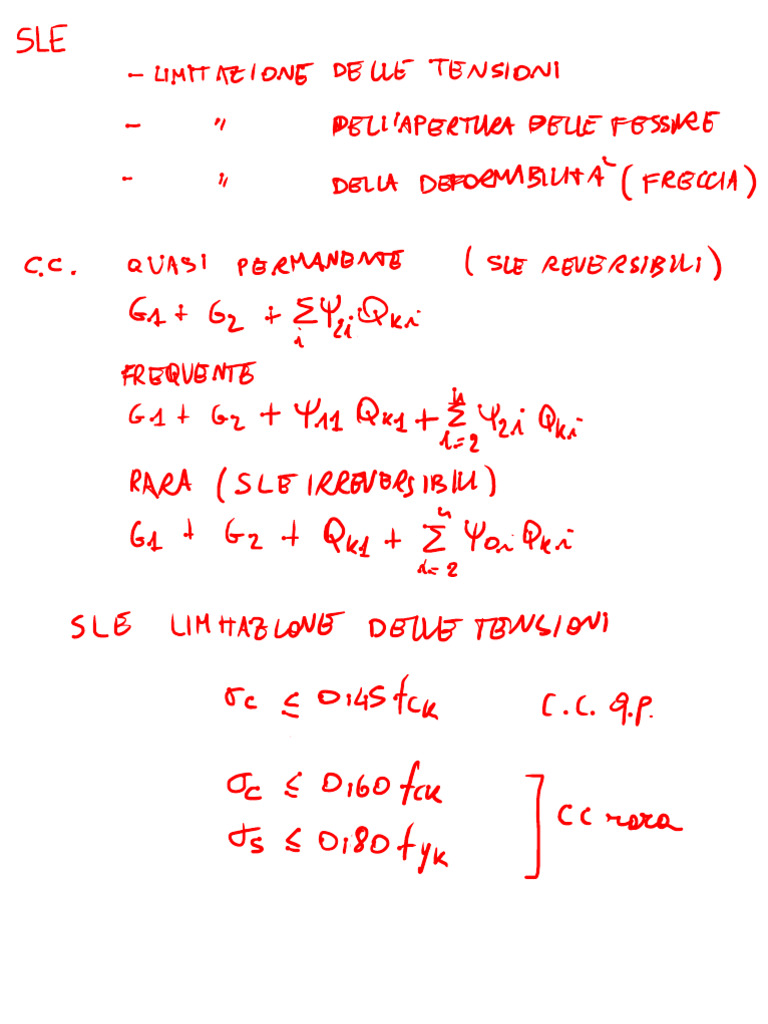 SLE
- LIMITAZIONE DELLE TENSIONI
- " DELL'APERTURA DELLE FESSURE
- " DELLA DEFORMABILITÀ (FRECCIA)
C.C. QUASI PERMANENTE (SLE REVERSIBILI)
G1 + G2 + Σ_i Ψ2i Qki
FREQUENTE
G1 + G2 + Ψ11 Qk1 + Σ_{i=2}^{n} Ψ2i Qki
RARA (SLE IRREVERSIBILI)
G1 + G2 + Qk1 + Σ_{i=2}^{n} Ψ0i Qki
SLE LIMITAZIONE DELLE TENSIONI
σc ≤ 0,45 fck C.C. q.p.
σc ≤ 0,60 fck
σs ≤ 0,80 fyk ] CC rara